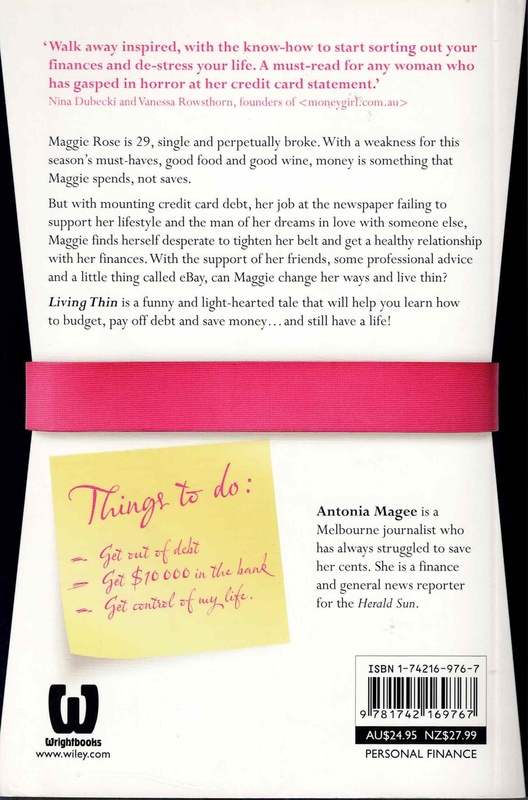 ‘Walk away inspired, with the know-how to start sorting out your
finances and de-stress your life. A must-read for any woman who
has gasped in horror at her credit card statement.’
Nina Dubecki and Vanessa Rowsthorn, founders of <moneygirl.com.au>
Maggie Rose is 29, single and perpetually broke. With a weakness for this
season’s must-haves, good food and good wine, money is something that
Maggie spends, not saves.
But with mounting credit card debt, her job at the newspaper failing to
support her lifestyle and the man of her dreams in love with someone else,
Maggie finds herself desperate to tighten her belt and get a healthy relationship
with her finances. With the support of her friends, some professional advice
and a little thing called eBay, can Maggie change her ways and live thin?
Living Thin is a funny and light-hearted tale that will help you learn how
to budget, pay off debt and save money…and still have a life!
Things to do:
– Get out of debt
– Get $10 000 in the bank
– Get control of my life.
Antonia Magee is a
Melbourne journalist who
has always struggled to save
her cents. She is a finance
and general news reporter
for the Herald Sun.
Wrightbooks
www.wiley.com
ISBN 1-74216-976-7
9 781742 169767
AU$24.95 NZ$27.99
PERSONAL FINANCE